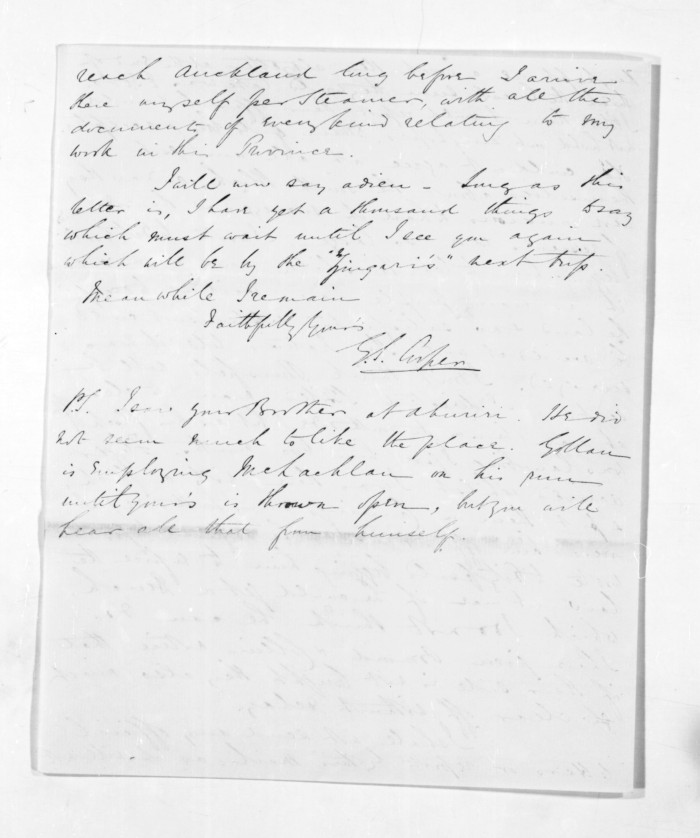 reach Auckland long before I arrive
there myself per Steamer, with all the
documents of every kind relating to my
work in this Province.
I will now say adieu - Long as this
letter is, I have yet a thousand things to say
which must wait until I see you again
which will be by the "Zingari's" next trip.
Meanwhile I remain
Faithfully Yours
G.S. Cooper
P.S. I saw your Brother at Ahuriri. He did
not seem much to like the place. Gollan
is employing McLachlan on his run
until your's is thrown open, but you will
hear all that from himself.